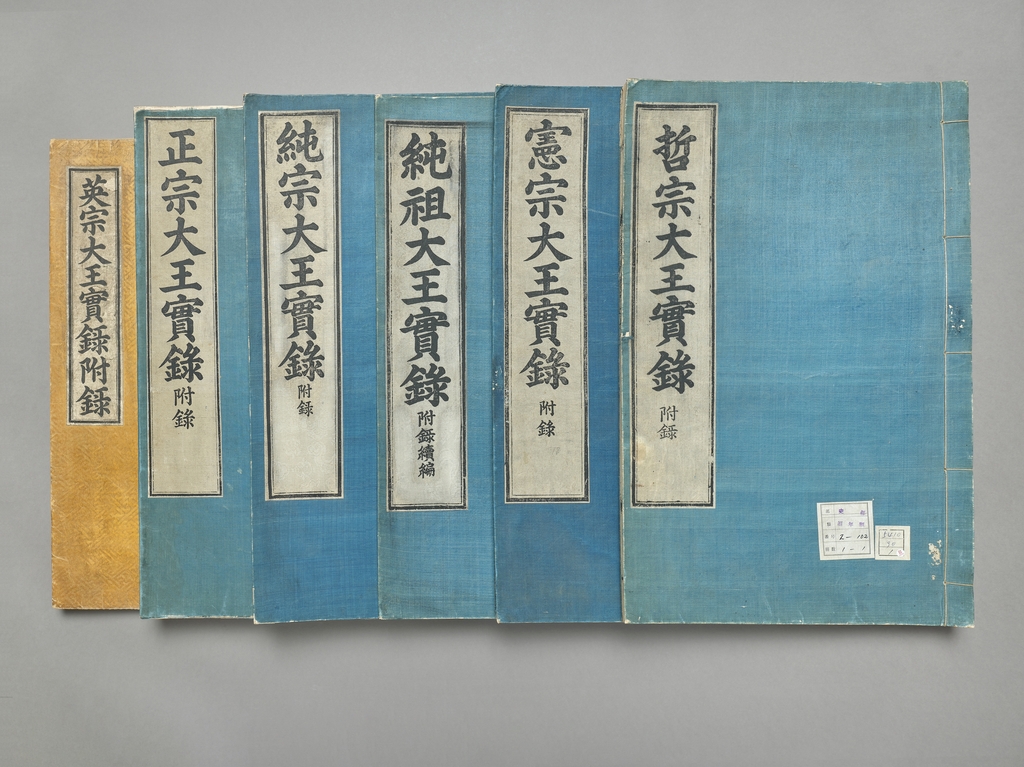 英宗大王實録附録
正宗大王實錄
附錄
純宗大王實錄
附錄
純祖大王實錄
附錄續編
憲宗大王實錄
附錄
哲宗大王實錄
附錄
2-102
1-1